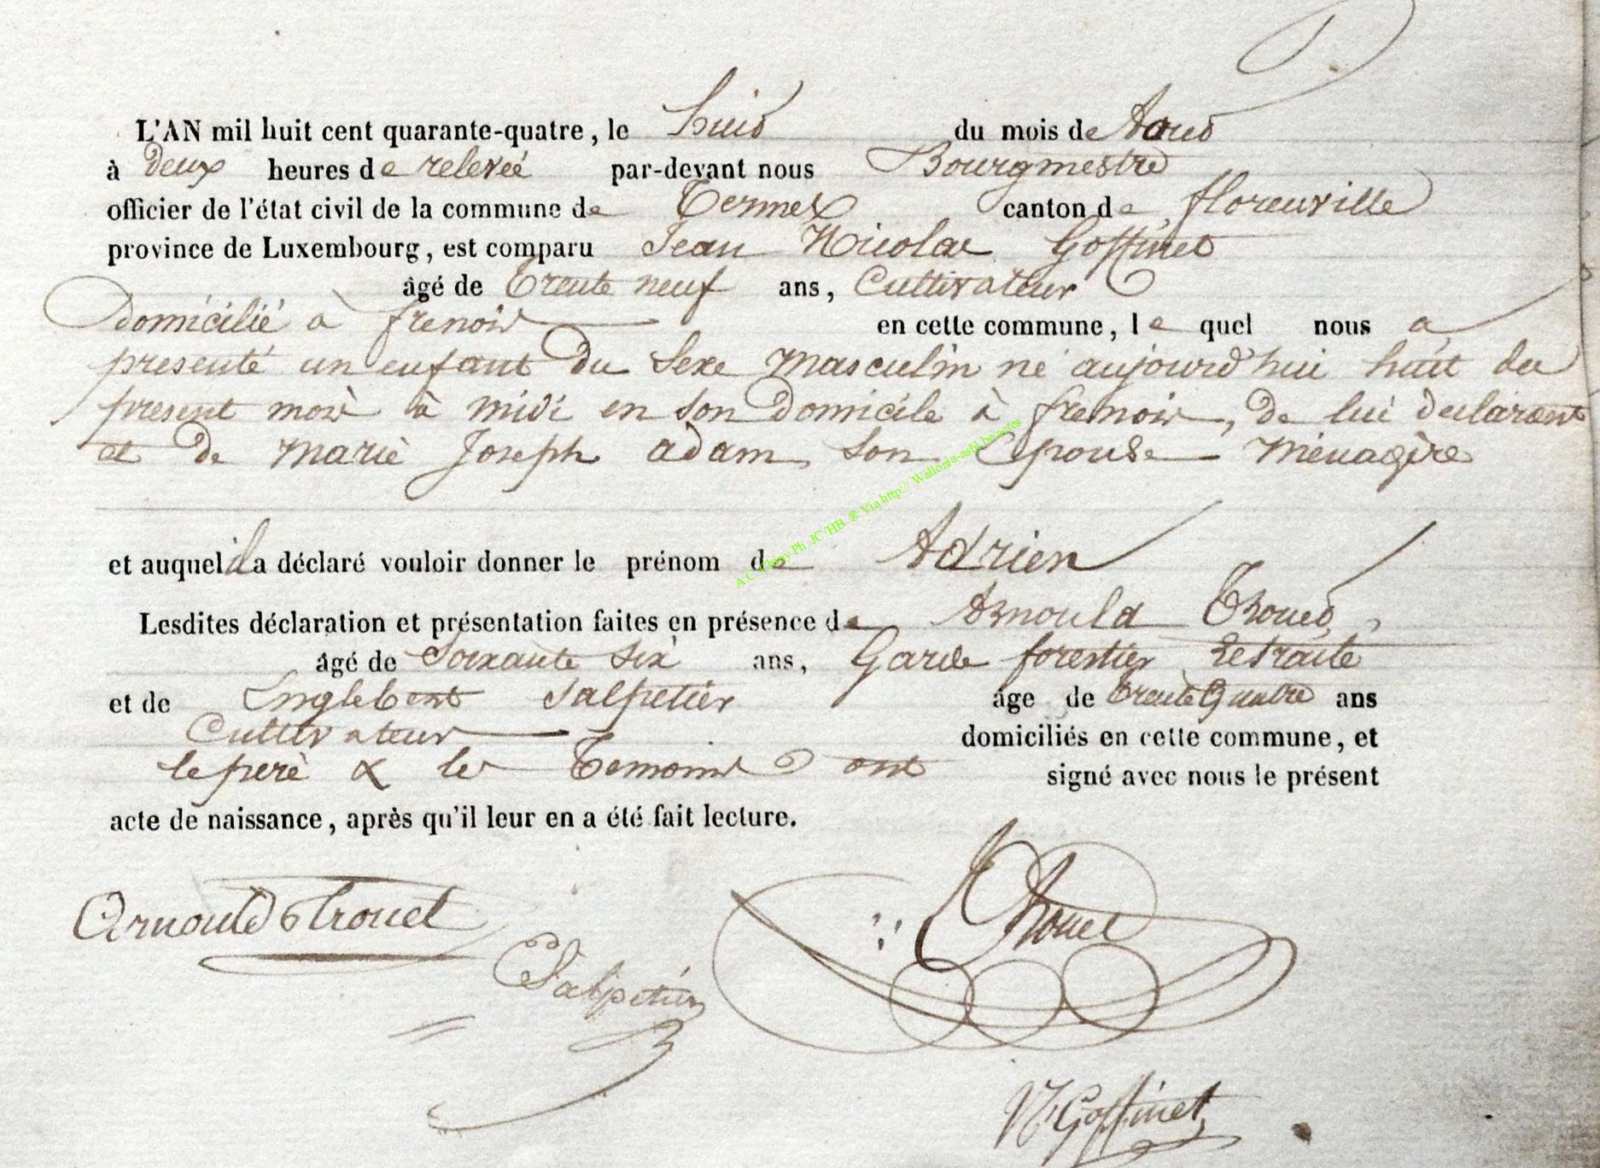 L'AN mil huit cent quarante-quatre, le huit du mois de Aout
à deux heures de relevéé par-devant nous Bourgmestre
officier de l'état civil de la commune de Termes canton de florenville
province de Luxembourg, est comparu Jean Nicolas Goffinet
âgé de trente neuf ans, Cultivateur
Domicilié à frenois en cette commune, le quel nous a
presenté un enfant du sexe masculin né aujourd'hui huit du
present mois à midi en son Domicile à frenois, de lui declarant
et de Marie Joseph adam son Epouse Ménagère
et auquel il a déclaré vouloir donner le prénom de Adrien
Lesdites déclaration et présentation faites en présence de Arnould Thouet
âgé de Soixante Six ans, Garde forestier Retraité
et de Englebert Salpetier âge de trente Quatre ans
Cultivateur domiciliés en cette commune, et
le peré & les Temoins ont signé avec nous le présent
acte de naissance, après qu'il leur en a été fait lecture.
Arnould Trouet
E Salpetier
Thouet
N Goffinet